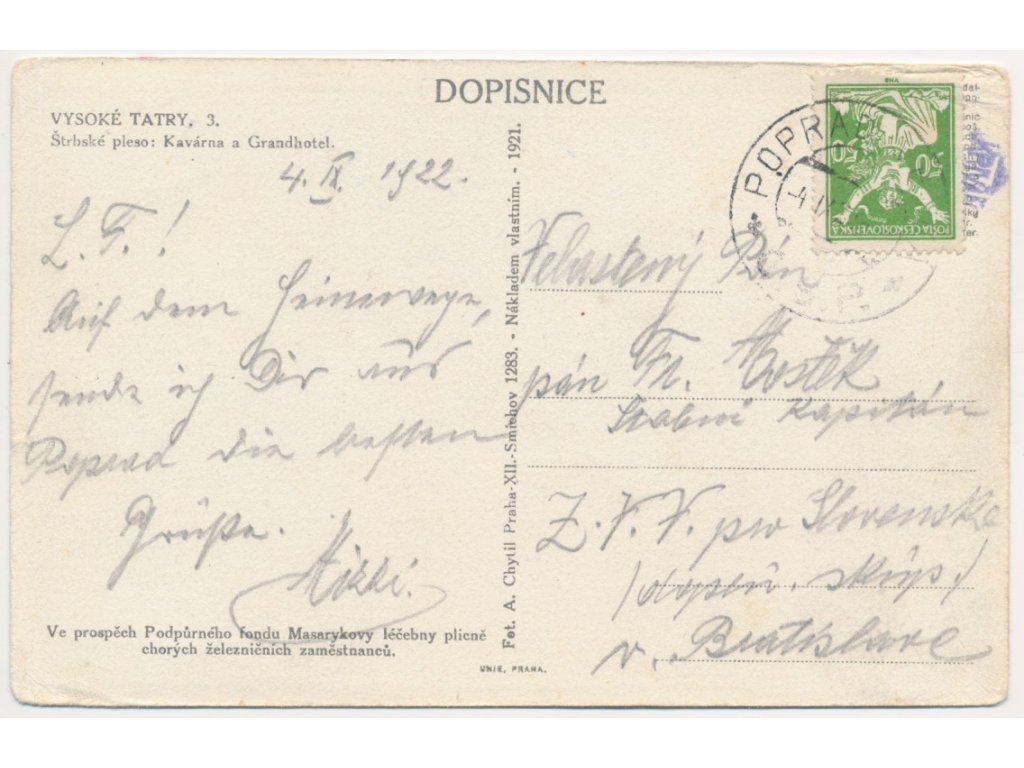 DOPISNICE
VYSOKÉ TATRY. 3.
Štrbské pleso: Kavárna a Grandhotel.
4. IX. 1922.
L. F.!
Auf dem Heimwege,
sende ich Dir aus
Poprad die besten
Grüße.
Mizzi.
Ve prospěch Podpůrného fondu Masarykovy léčebny plicně
chorých železničních zaměstnanců.
UNIE, PRAHA.
Fot. A. Chytil Praha-XII.-Smíchov 1283. - Nákladem vlastním. - 1921.
POPRAD
50 50
POŠTA ČESKOSLOVENSKÁ
Pán
pán Fr.
Kapitán
Z. V. V. pro Slovensko
v. Bratislave